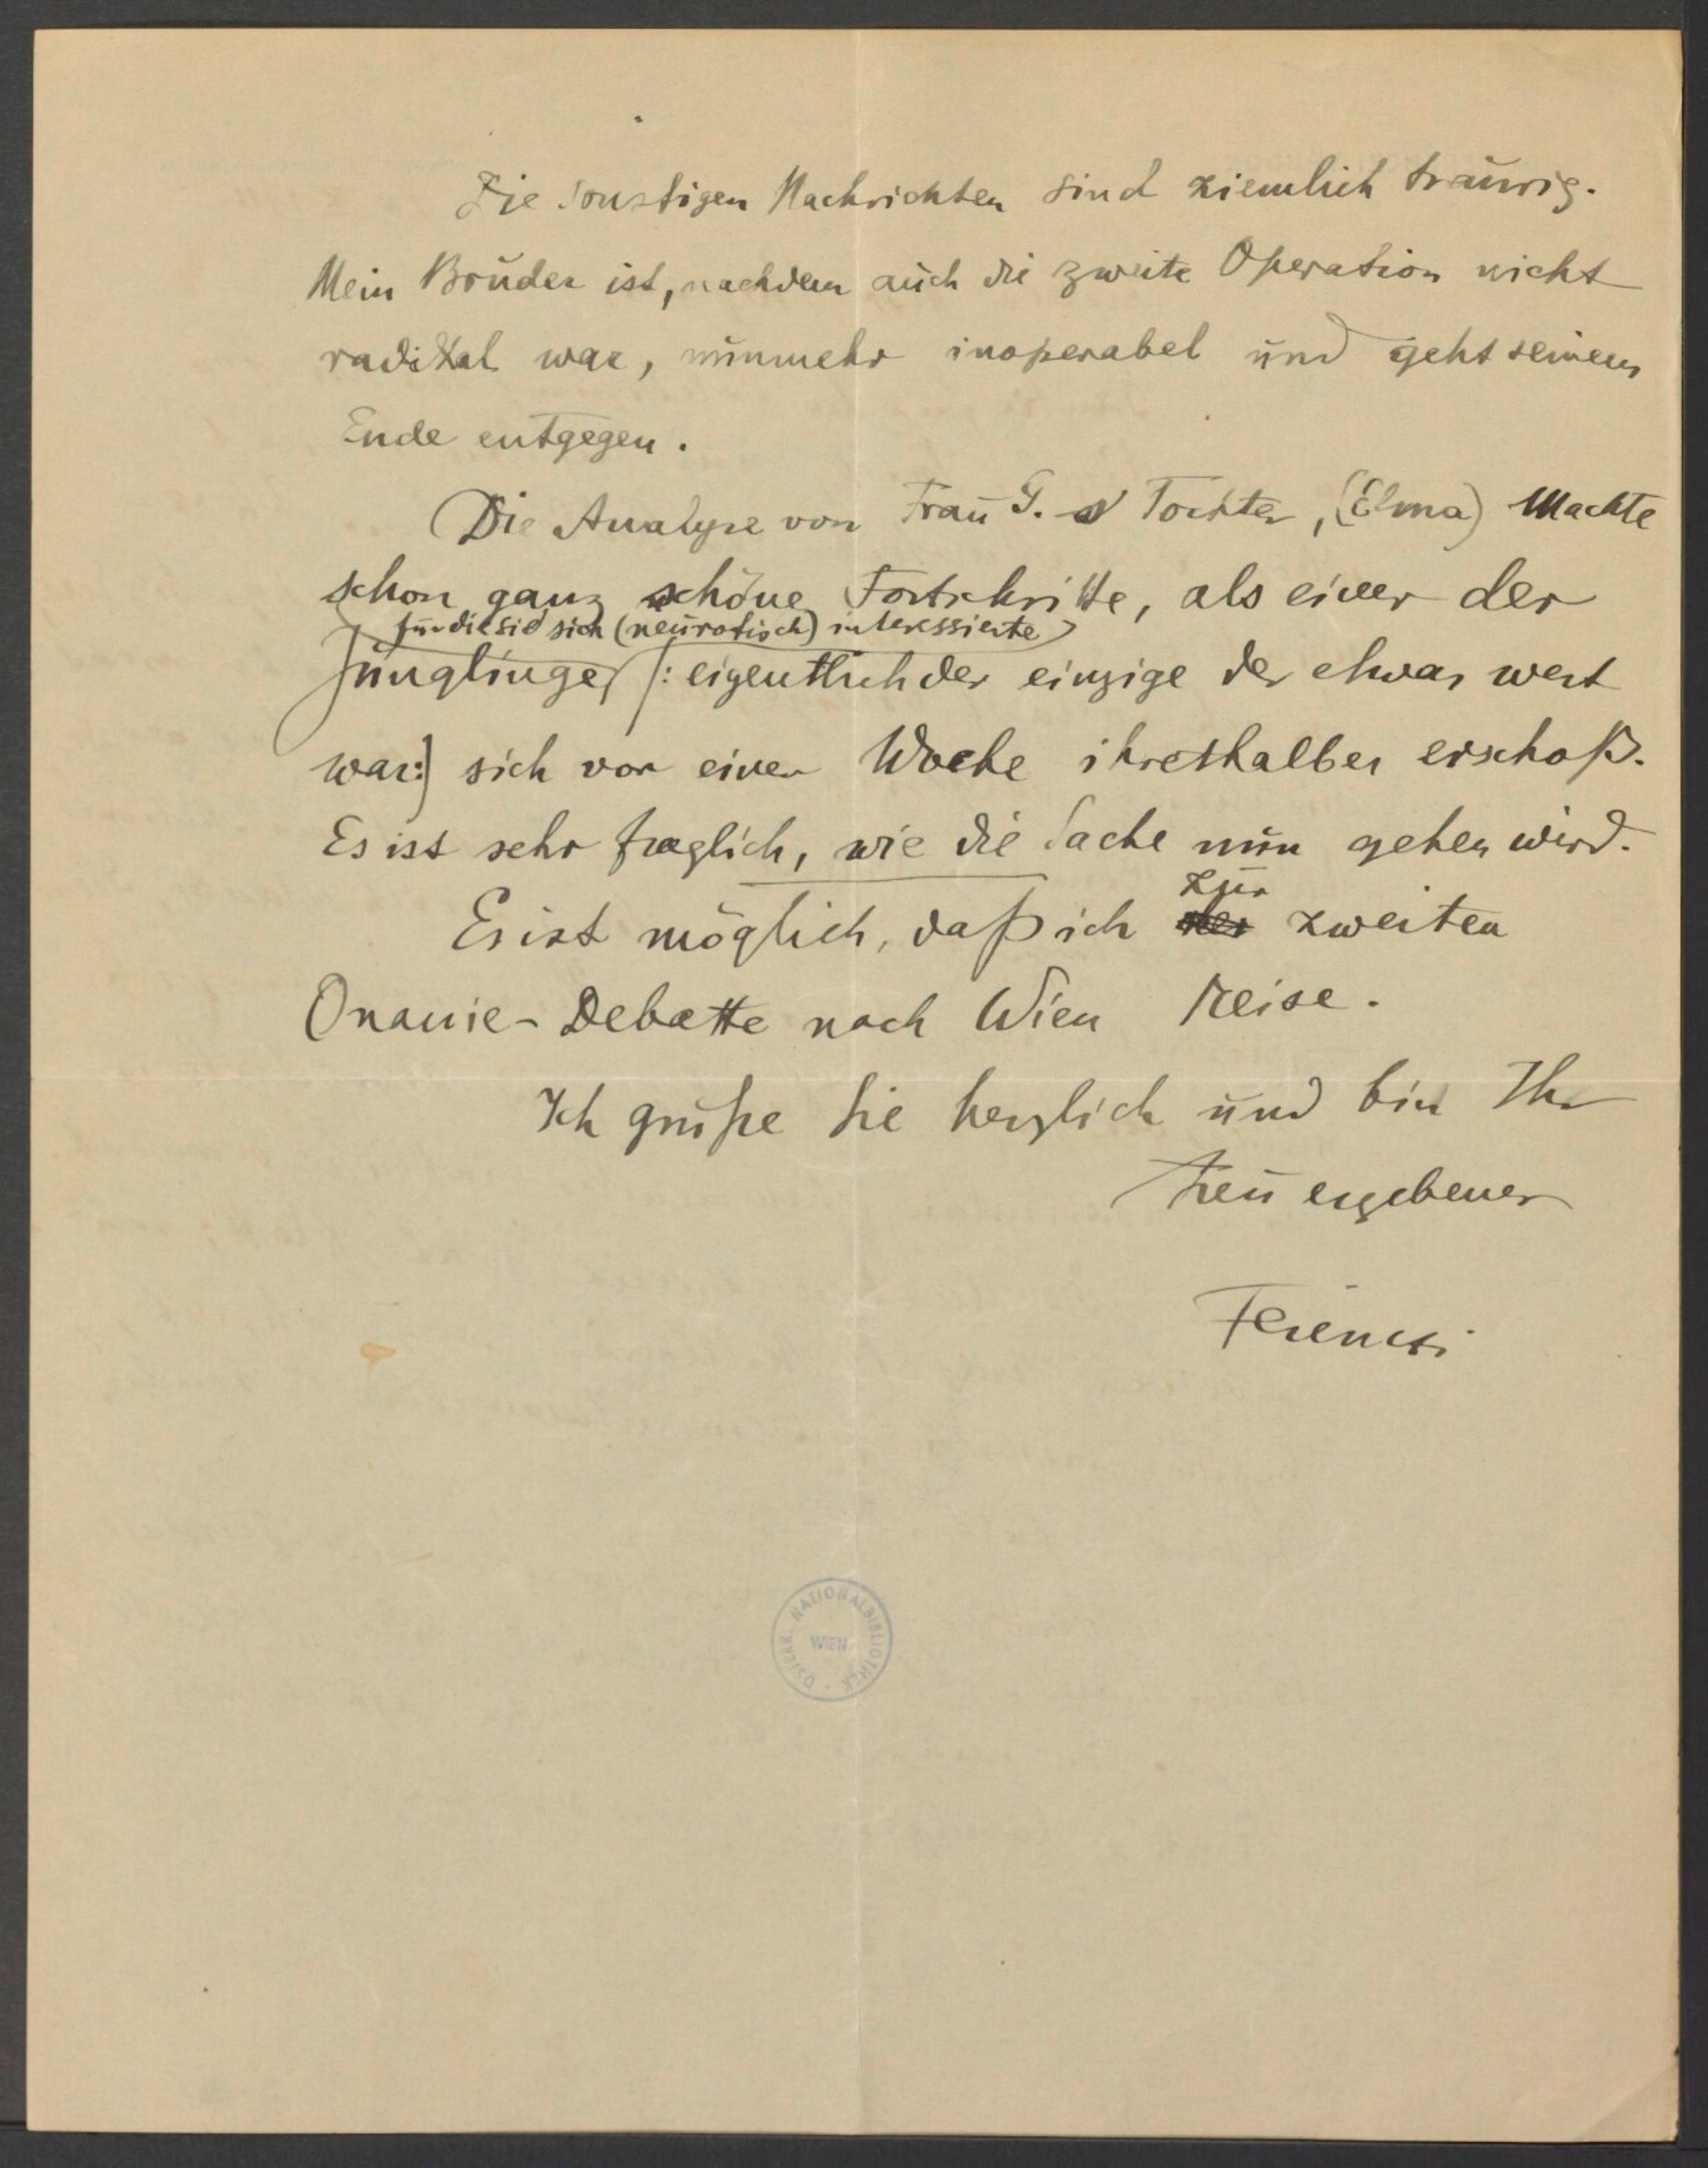 Die sonstigen Nachrichten sind ziemlich traurig.
Mein Bruder ist, nachdem auch die zweite Operation nicht
radikal war, nunmehr inoperabel und geht seinem
Ende entgegen.
Die Analyse von Frau G.s Tochter, (Elma) machte
schon ganz schöne Fortschritte, als einer der
für die sie sich (neurotisch) interessierte
Jünglinge /: eigentlich der einzige der etwas wert
war:/ sich vor einer Woche ihrethalber erschoß.
Es ist sehr fraglich, wie die Sache nun gehen wird.
zur
Es ist möglich, daß ich der zweiten
Onanie-Debatte nach Wien reise.
Ich grüße Sie herzlich und bin Ihr
treu ergebener
Ferenczi
ÖSTERR. NATIONALBIBLIOTHEK
WIEN